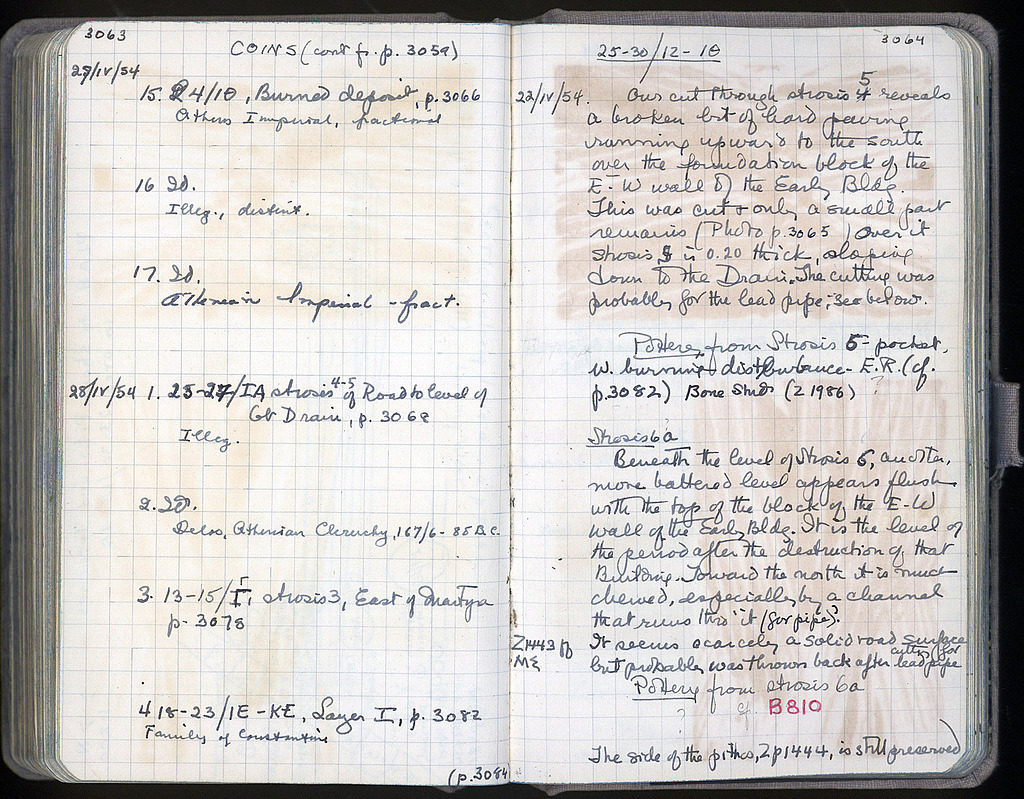 3063
COINS (cont fr. p. 3059)
27/IV/54
15. 24/ΙΘ, Burned deposit, p. 3066
Athens Imperial, fractional
16 Id.
Illeg., distint.
17. Id.
Athenian Imperial - fract.
28/IV/54 1. 25-27/ΙΑ strosis 4-5 of Road to level of
Gt Drain, p. 3068
Illeg.
2. Id.
Delos, Athenian Cleruchy, 167/6 - 85 B.C.
3. 13-15/Γ, strosis 3, East of
p. 3078
4 18-23/ΙΕ-ΚΕ, Layer I, p. 3082
Family of Constantine
(p. 3084
3064
25-30/12-18
22/IV/54. Our cut through strosis 5 reveals
a broken bit of hard paving
running upward to the south
over the foundation block of the
E-W wall of the Early Bldg.
This was cut & only a small part
remains (Photo p. 3065 ) Over it
strosis 5 is 0.20 thick, sloping
down to the Drain. The cutting was
probably for the lead pipe; see below.
Pottery from Strosis 5 - pocket,
w. burning disturbance - E.R. (cf.
p. 3082) Bone Stud (Z 1986) ?
Strosis 6a
Beneath the level of Strosis 6, another,
more battered level appears flush
with the top of the block of the E-W
wall of the Early Bldg. It is the level of
the period after the destruction of that
Building. Toward the north it is much
chewed, especially by a channel
that runs thro' it (for pipe)?
Z1443
ΜΣ
It seems scarcely a solid road surface
but probably was thrown back after cutting for lead pipe
Pottery from strosis 6a
? cf. B810
The side of the pithos, Zp1444, is still preserved